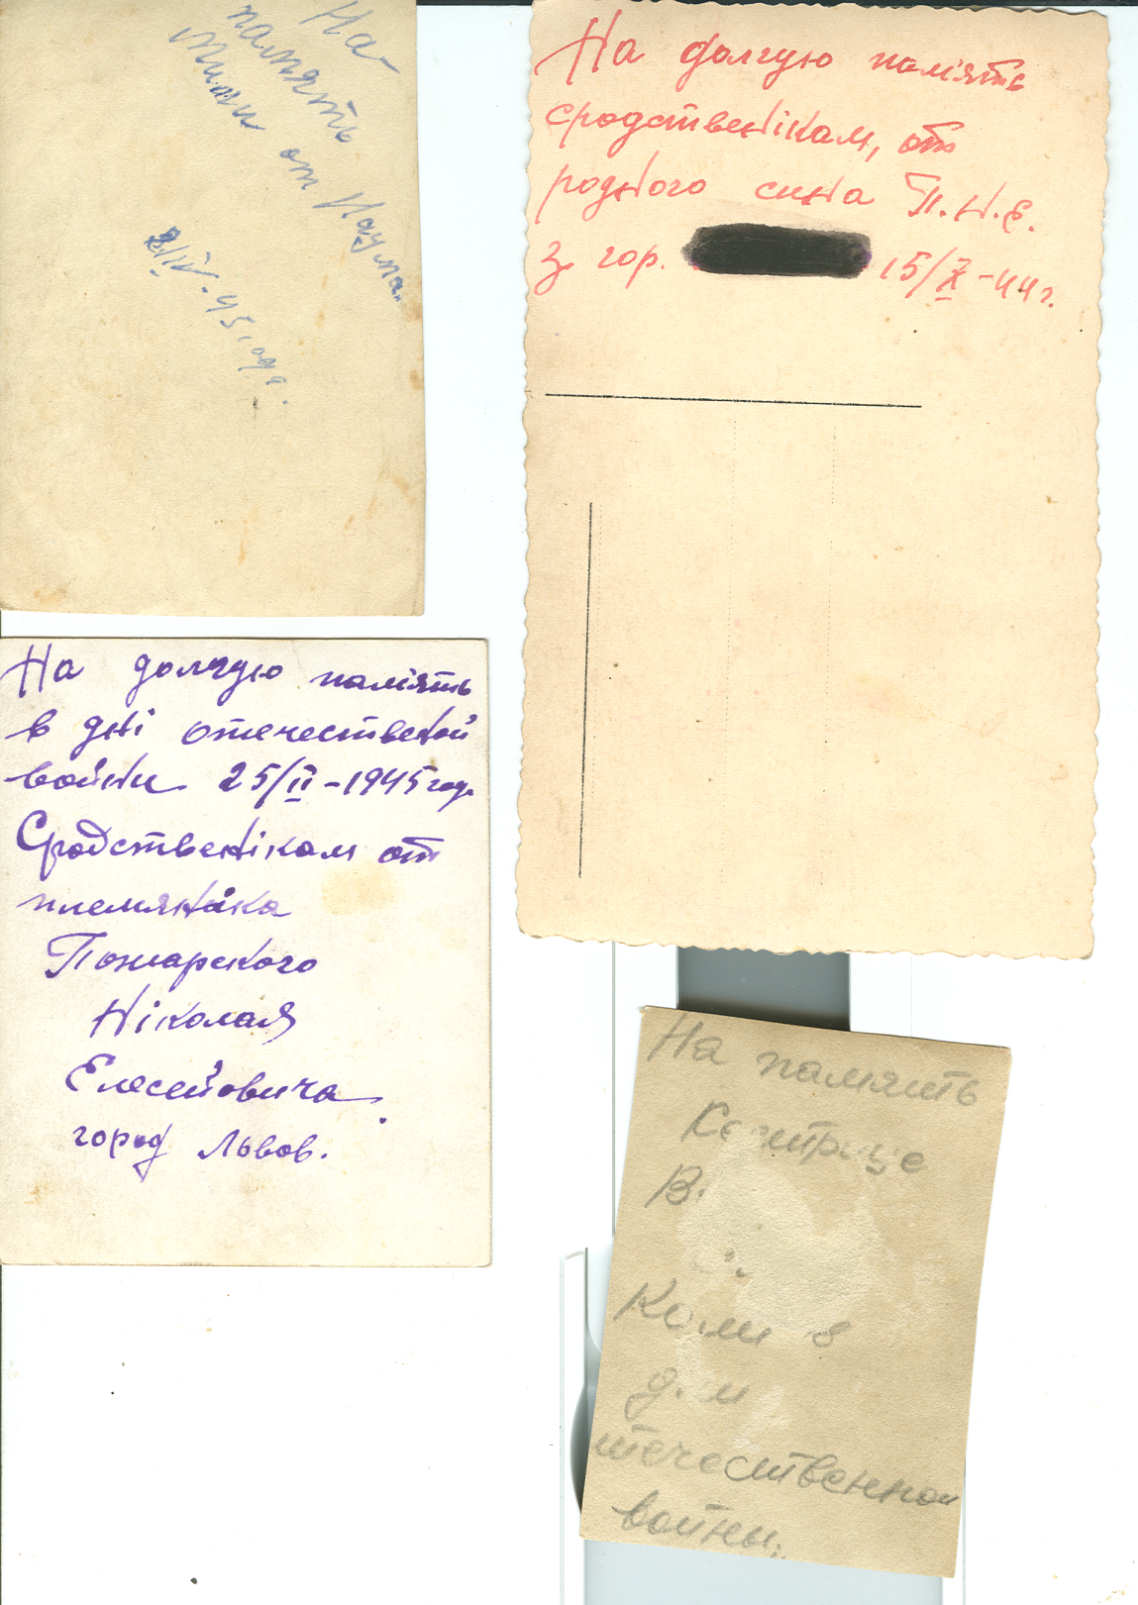 На
память
от Наума.
2/IV-45 года.
На долгую памʼять
сродственікам, от
родного сина П.Н.Е.
з гор. 15/X-44 г.
На долгую памʼять
в дні отечественой
войни 25/II-1945 года
Сродственікам от
племяніка
Пожарского
Ніколая
Елесейовича.
город Львов.
На память
В.
Коли в
течественной
войны.